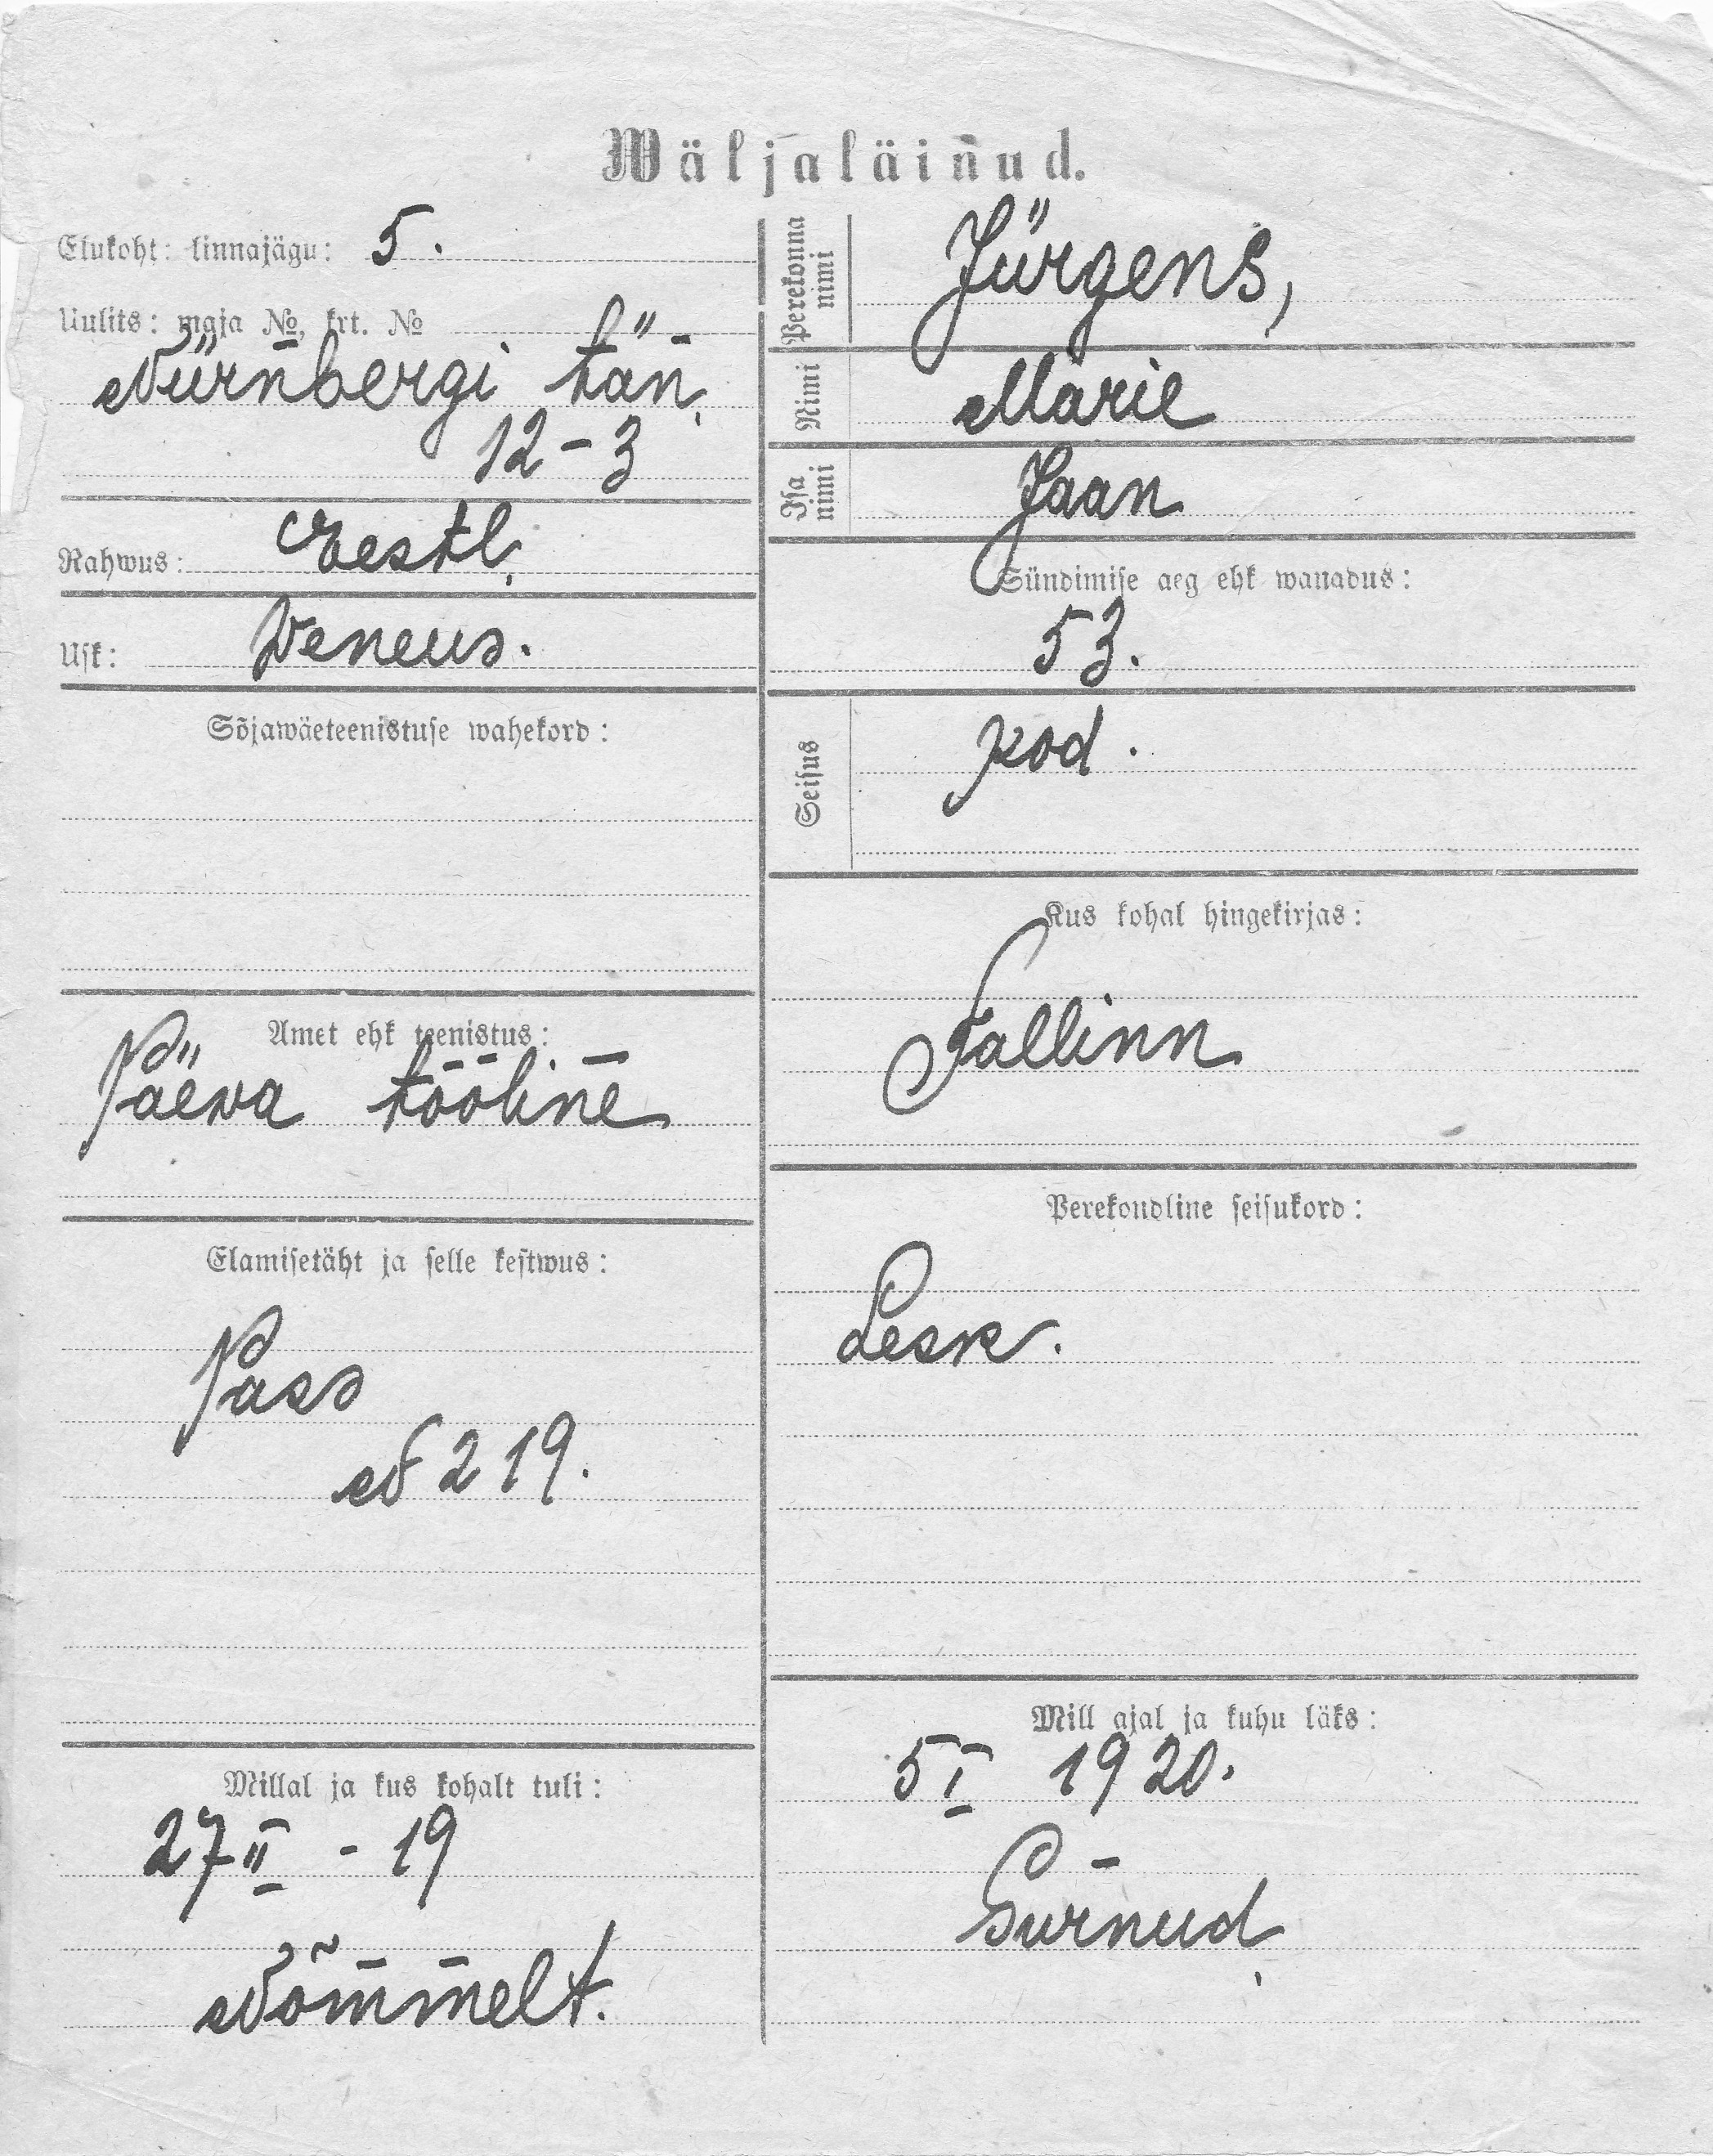 Wäljaläinud.
Elukoht: linnajägu: 5.
Uulits: maja №, krt. №
Nürnbergi tän.
12-3
Rahwus: Eestl.
Usk: Veneus.
Sõjawäeteenistuse wahekord:
Amet ehk teenistus:
Päeva tööline
Elamisetäht ja selle kestwus:
Pass
№ 219.
Millal ja kus kohalt tuli:
27 II - 19
Nõmmelt.
Perekonna nimi Jürgens,
Nimi Marie
Isa nimi Jaan
Sündimise aeg ehk wanadus:
53.
Seisus kod.
Kus kohal hingekirjas:
Tallinn
Perekondline seisukord:
Lesk.
Mill ajal ja kuhu läks:
5 I 1920.
Surnud